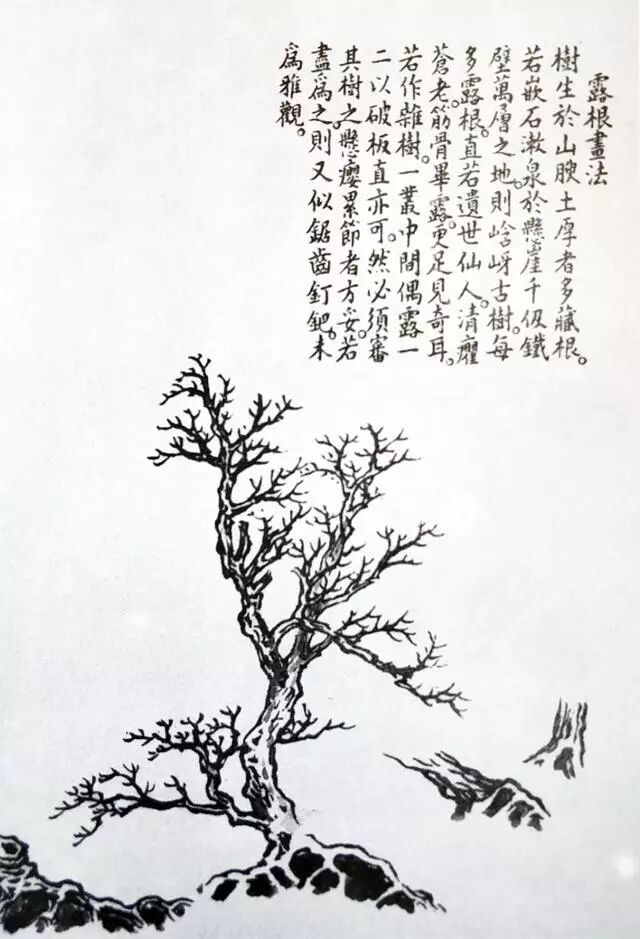 露根畫法
樹生於山腴土厚者多藏根。
若嵌石漱泉於懸崖千仭鐵
壁萬層之地。則峆岈古樹。每
多露根。直若遺世仙人。清癯
蒼老。筋骨畢露。更足見奇耳。
若作雜樹。一叢中間偶露一
二以破板直亦可。然必須審
其樹之懸癭累節者方妥。若
盡爲之。則又似鋸齒釘鈀。未
爲雅觀。